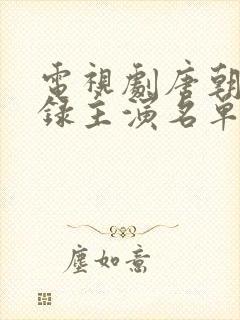 電視劇唐朝
錄主演名單
塵如意